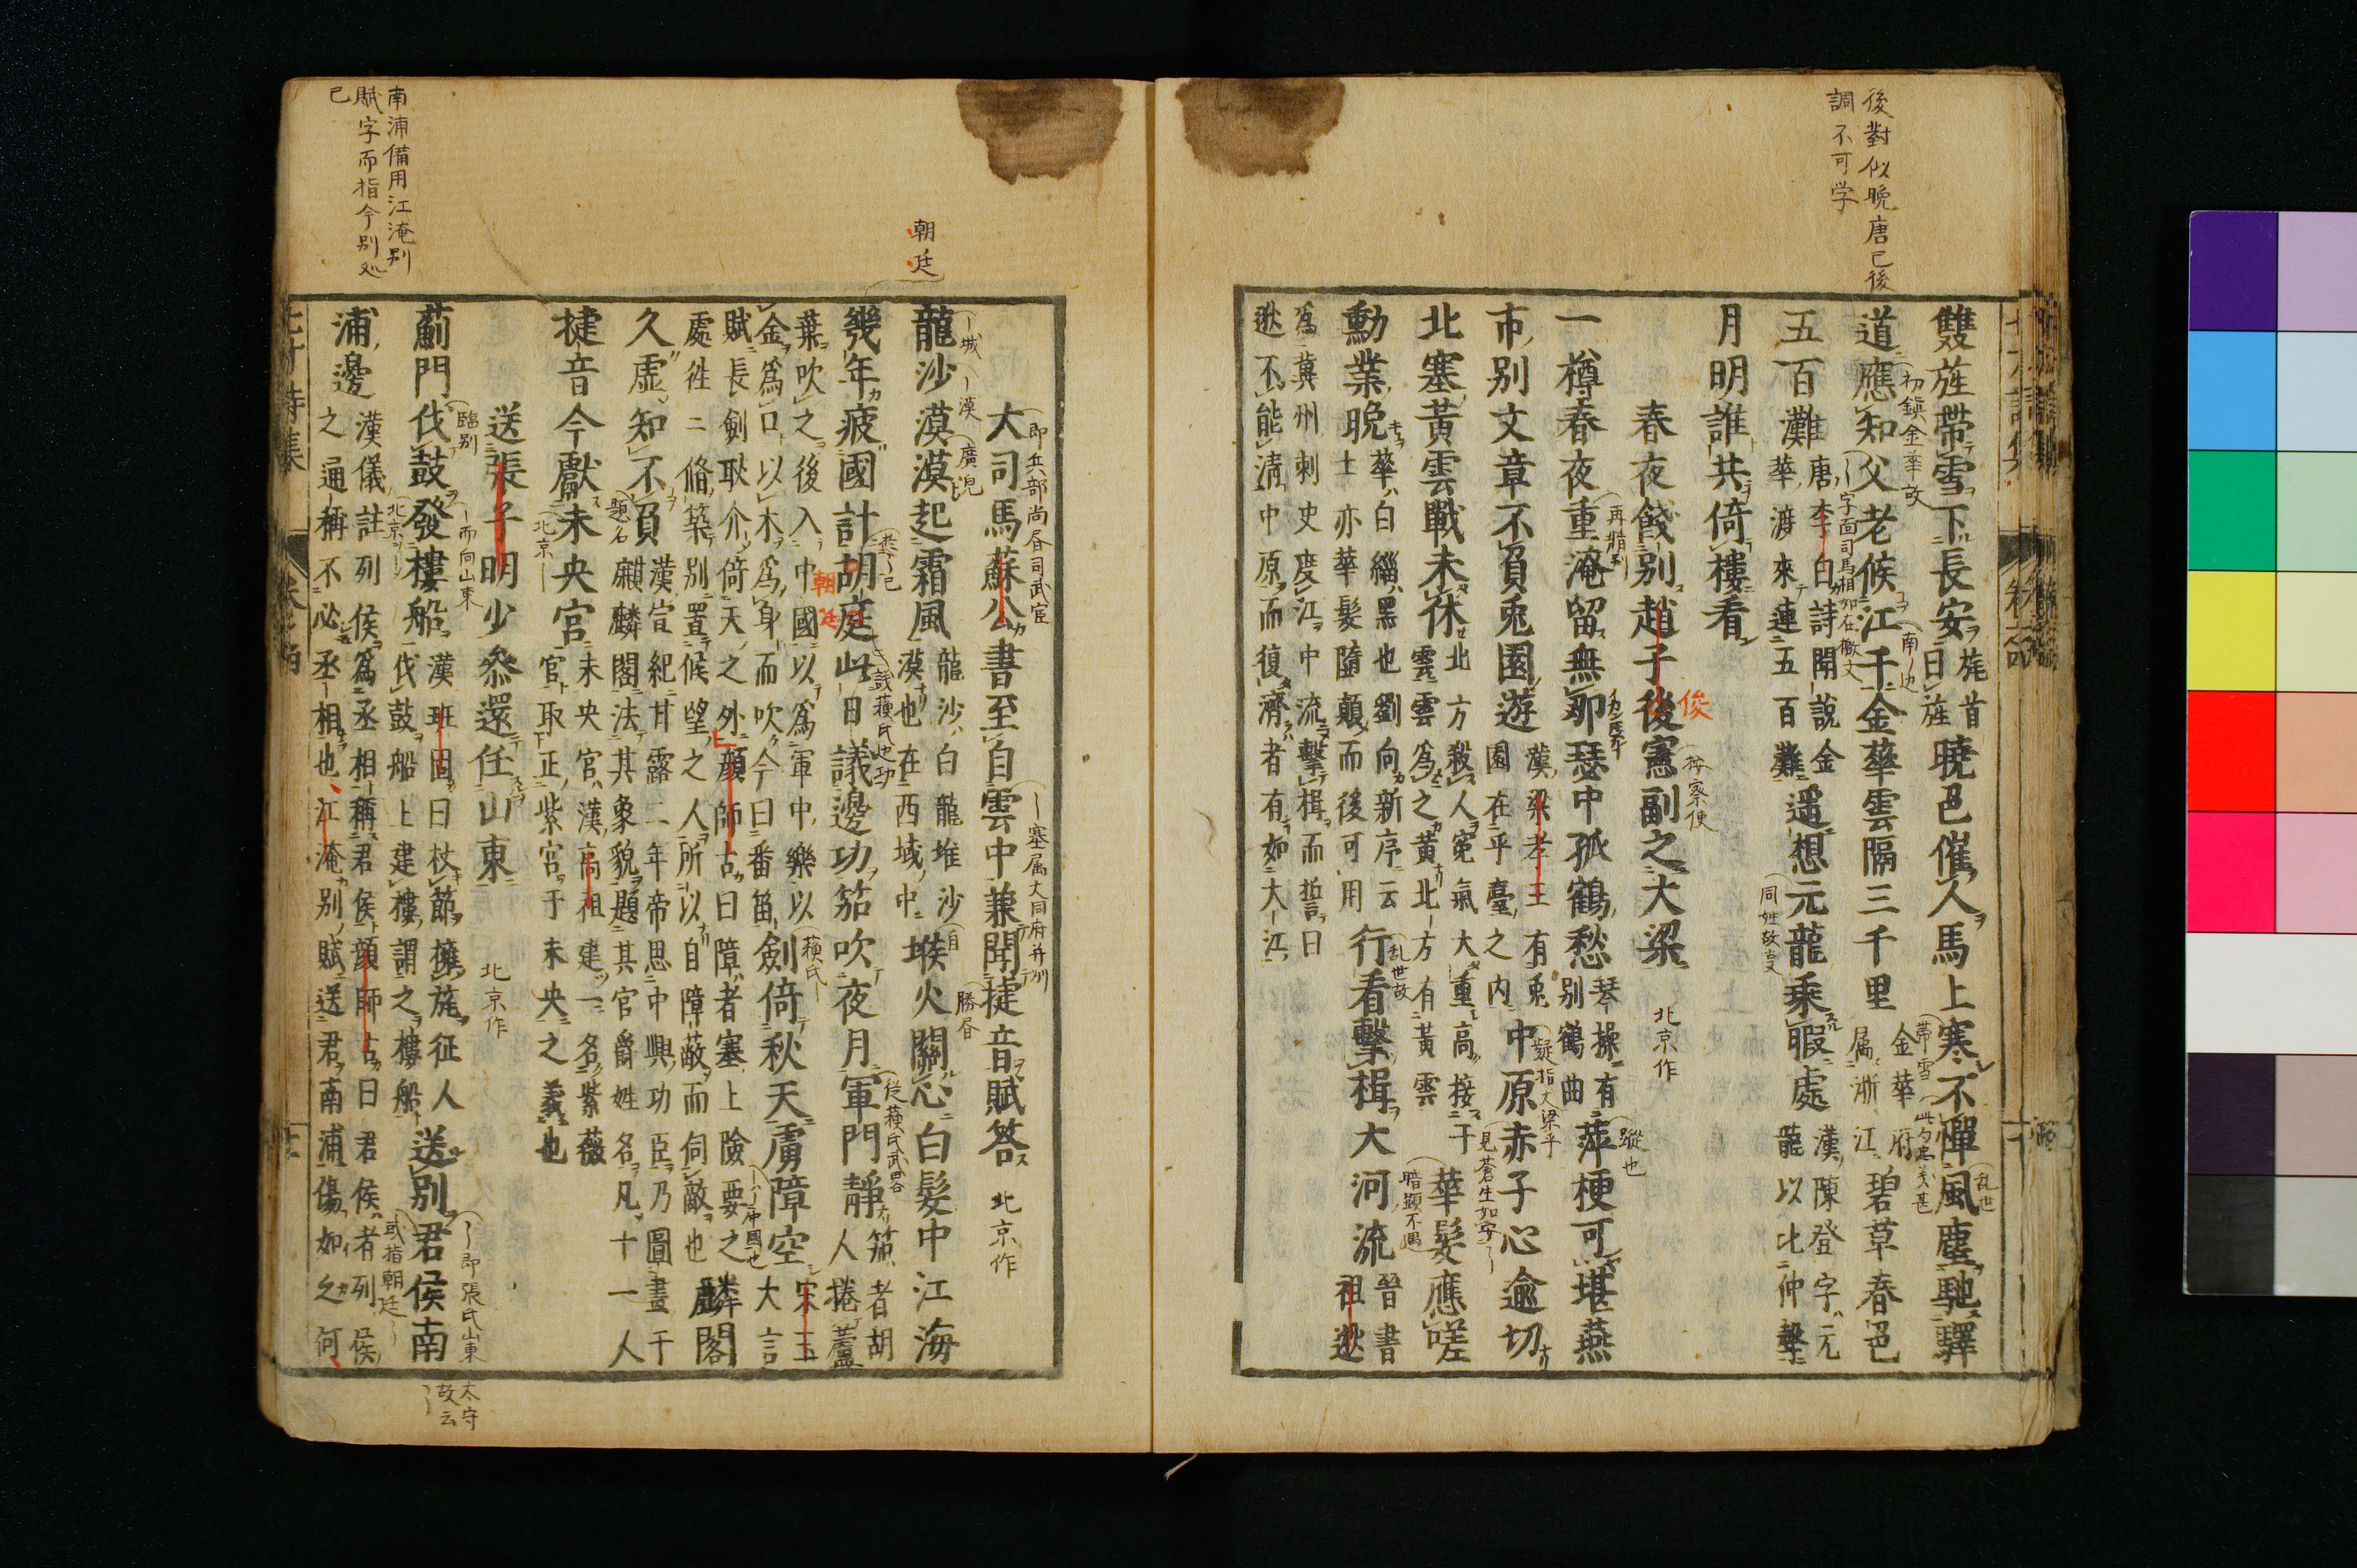 後對似晚唐已後
調不可学
雙旌帶雪下長安旄首曰旌曉邑催人馬上寒不憚風塵馳驛
道應知父老候江干金華雲隔三千里金華府屬浙江碧草春邑
五百灘唐李白詩聞說金華渡來連五百灘遥想元龍乘暇處漢陳登字元龍以比仲擊
月明誰共倚樓看
春夜餞別趙子後憲副之大梁 北京作
俊
按察使
一樽春夜重淹留無那瑟中孤鶴愁琴操有別鶴曲萍梗可堪燕
市別文章不負兎園遊漢梁孝王有兎園在乎臺之内中原赤子心逾切
北塞黃雲戰未休北方殺人寃氣大重高接于雲雲爲之黃北方有黃雲華髮應嗟
勳業晚華白緇黑也劉向新序云士亦華髮隨顛而後可用行看擊楫大河流晉書祖逖
爲冀州刺史度江中流擊楫而誓曰
逖不能清中原而復濟者有如大江
朝廷
大司馬蘇公書至自雲中兼聞捷音賦答 北京作
即兵部尚書司武官
龍沙漠漠起霜風龍沙白龍堆沙漠也在西域中堠火關心白髮中江海
幾年疲國計胡庭此日議邊功笳吹夜月軍門靜笳者胡人捲蘆
朝廷
葉吹之後入中國以爲軍中樂以
金爲口以木爲身而吹今曰番笛劍倚秋天虜障空宋玉大言
賦長劍耿介倚天之外顔師古曰障者塞上險要之
處徃二脩築別置候望之人所以自障蔽而伺敵也麟閣
久虛知不負漢宣紀甘露二年帝思中興功臣乃圖畫于麒麟閣法其象貌題其官爵姓名凡十一人
捷音今獻未央宮未央宮漢高祖建一名紫薇宮取正紫宮于未央之義也
送張子明少叅還任山東 北京作
薊門伐鼓發樓船漢班固曰杖節擁旄征人伐鼓船上建樓謂之樓船送別君侯南
浦邊漢儀註列侯爲丞相稱君侯顔師古曰君侯者列侯之通稱不必丞相也江淹別賦送君南浦傷如之何
南浦備用江淹別
賦字而指今別処
已
太守
故云